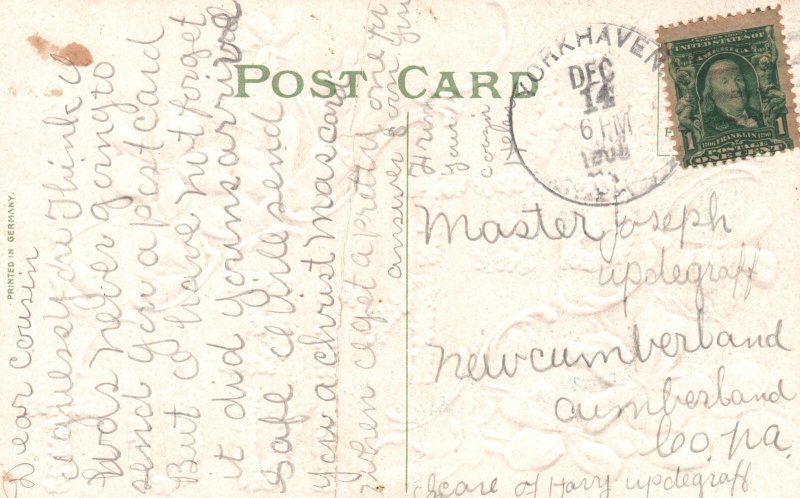 POST CARD
PRINTED IN GERMANY.
Dear cousin
I guess you Think I
was never going to
send you a post card
But I have not forget
it did yours arrive
Safe I will send
you a christmas card
When I get a pretty one
answer soon
From
your
cousin
Helen
YORKHAVEN
DEC
14
6 PM
UNITED STATES OF
AMERICA
1
1706 FRANKLIN 1790
POSTAGE
ONE CENT
Master Joseph
updegraff
newcumberland
cumberland
Co, Pa.
care of Harry updegraff